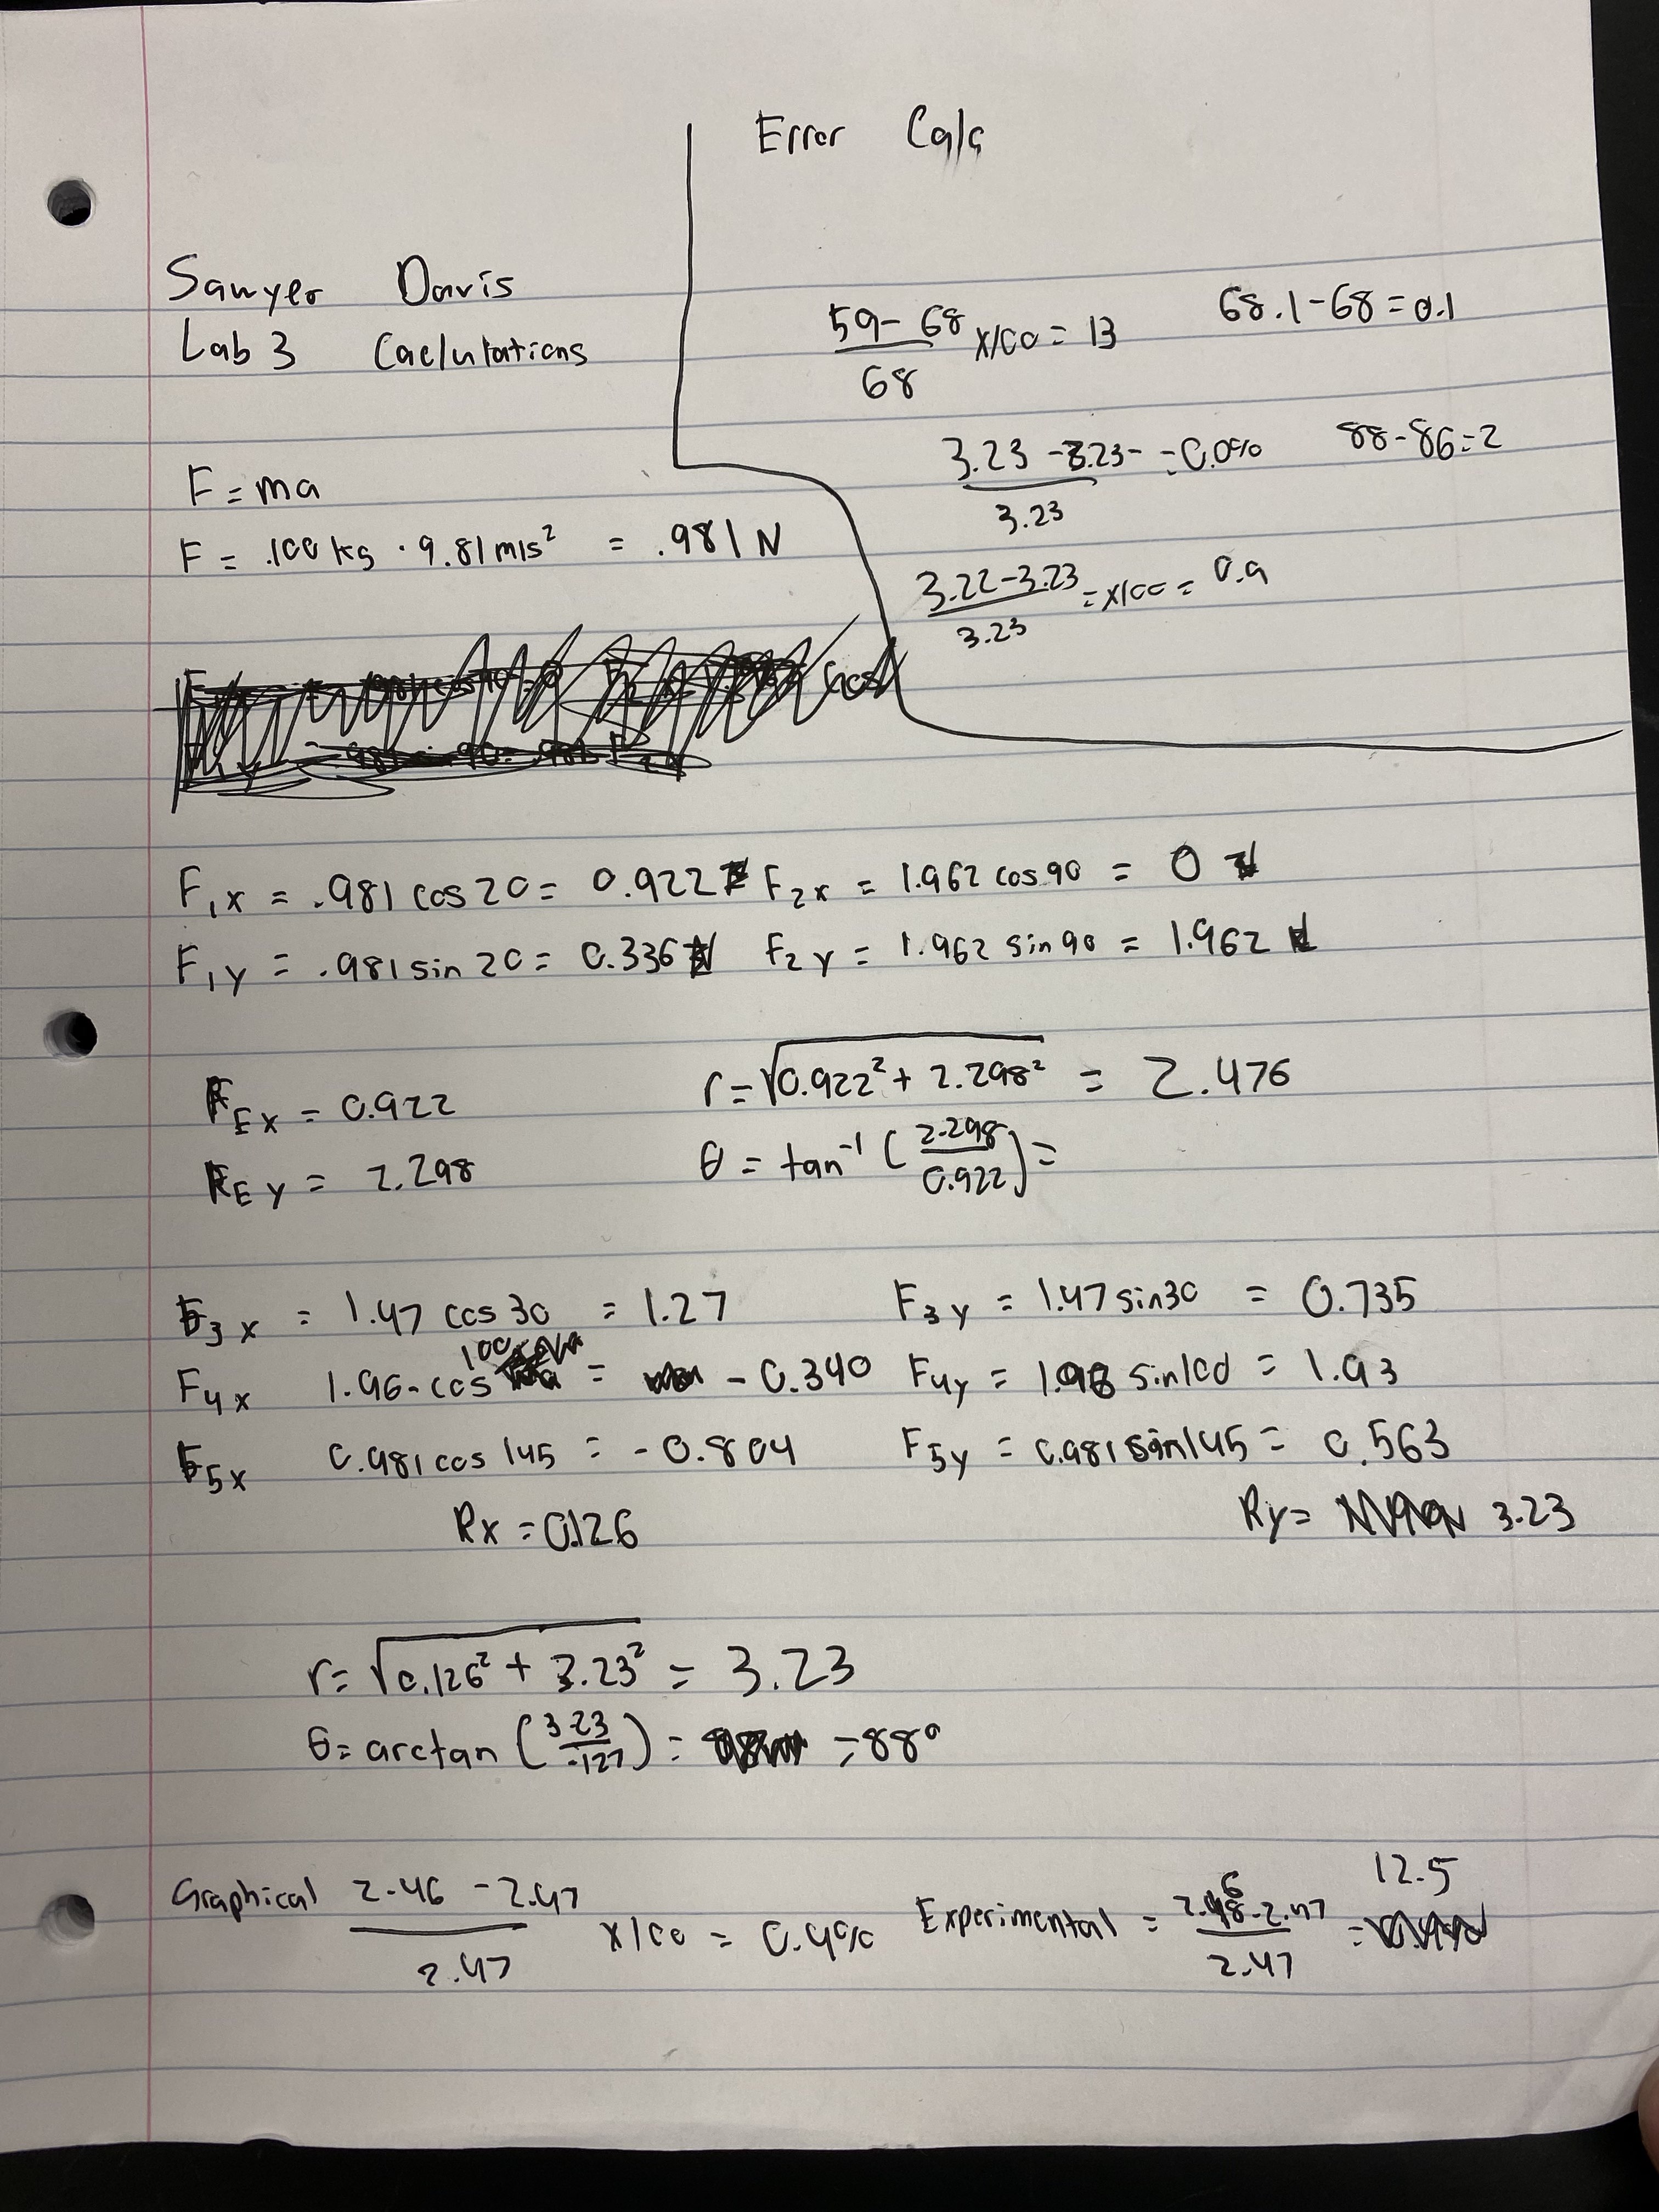 Error Calc
Sawyer Davis
Lab 3 Caclulations
59-68/68 x100 = 13 68.1-68=0.1
3.23-3.23-/3.23 =0.0% 88-86=2
3.22-3.23/3.23 =x100= 0.9
F=ma
F= .100 kg · 9.81 m/s² = .981 N
F₁x = .981 cos 20= 0.922 F₂x = 1.962 cos 90 = 0
F₁y = .981 sin 20= 0.336 F₂y = 1.962 sin 90 = 1.962
REx = 0.922 r=√0.922²+2.298² = 2.476
REy = 2.298 θ = tan⁻¹(2.298/0.922)=
F₃x = 1.47 cos 30 = 1.27 F₃y = 1.47 sin 30 = 0.735
F₄x 1.96-cos 100 = -0.340 F₄y = 1.96 sin 100 = 1.93
F₅x 0.981 cos 145 = -0.804 F₅y = 0.981 sin 145 = 0.563
Rx = 0.126 Ry= 3.23
r= √0.126²+3.23² = 3.23
θ= arctan (3.23/.127) = =88°
Graphical 2.46-2.47/2.47 x100 = 0.4% Experimental = -2.47/2.47 = 12.5